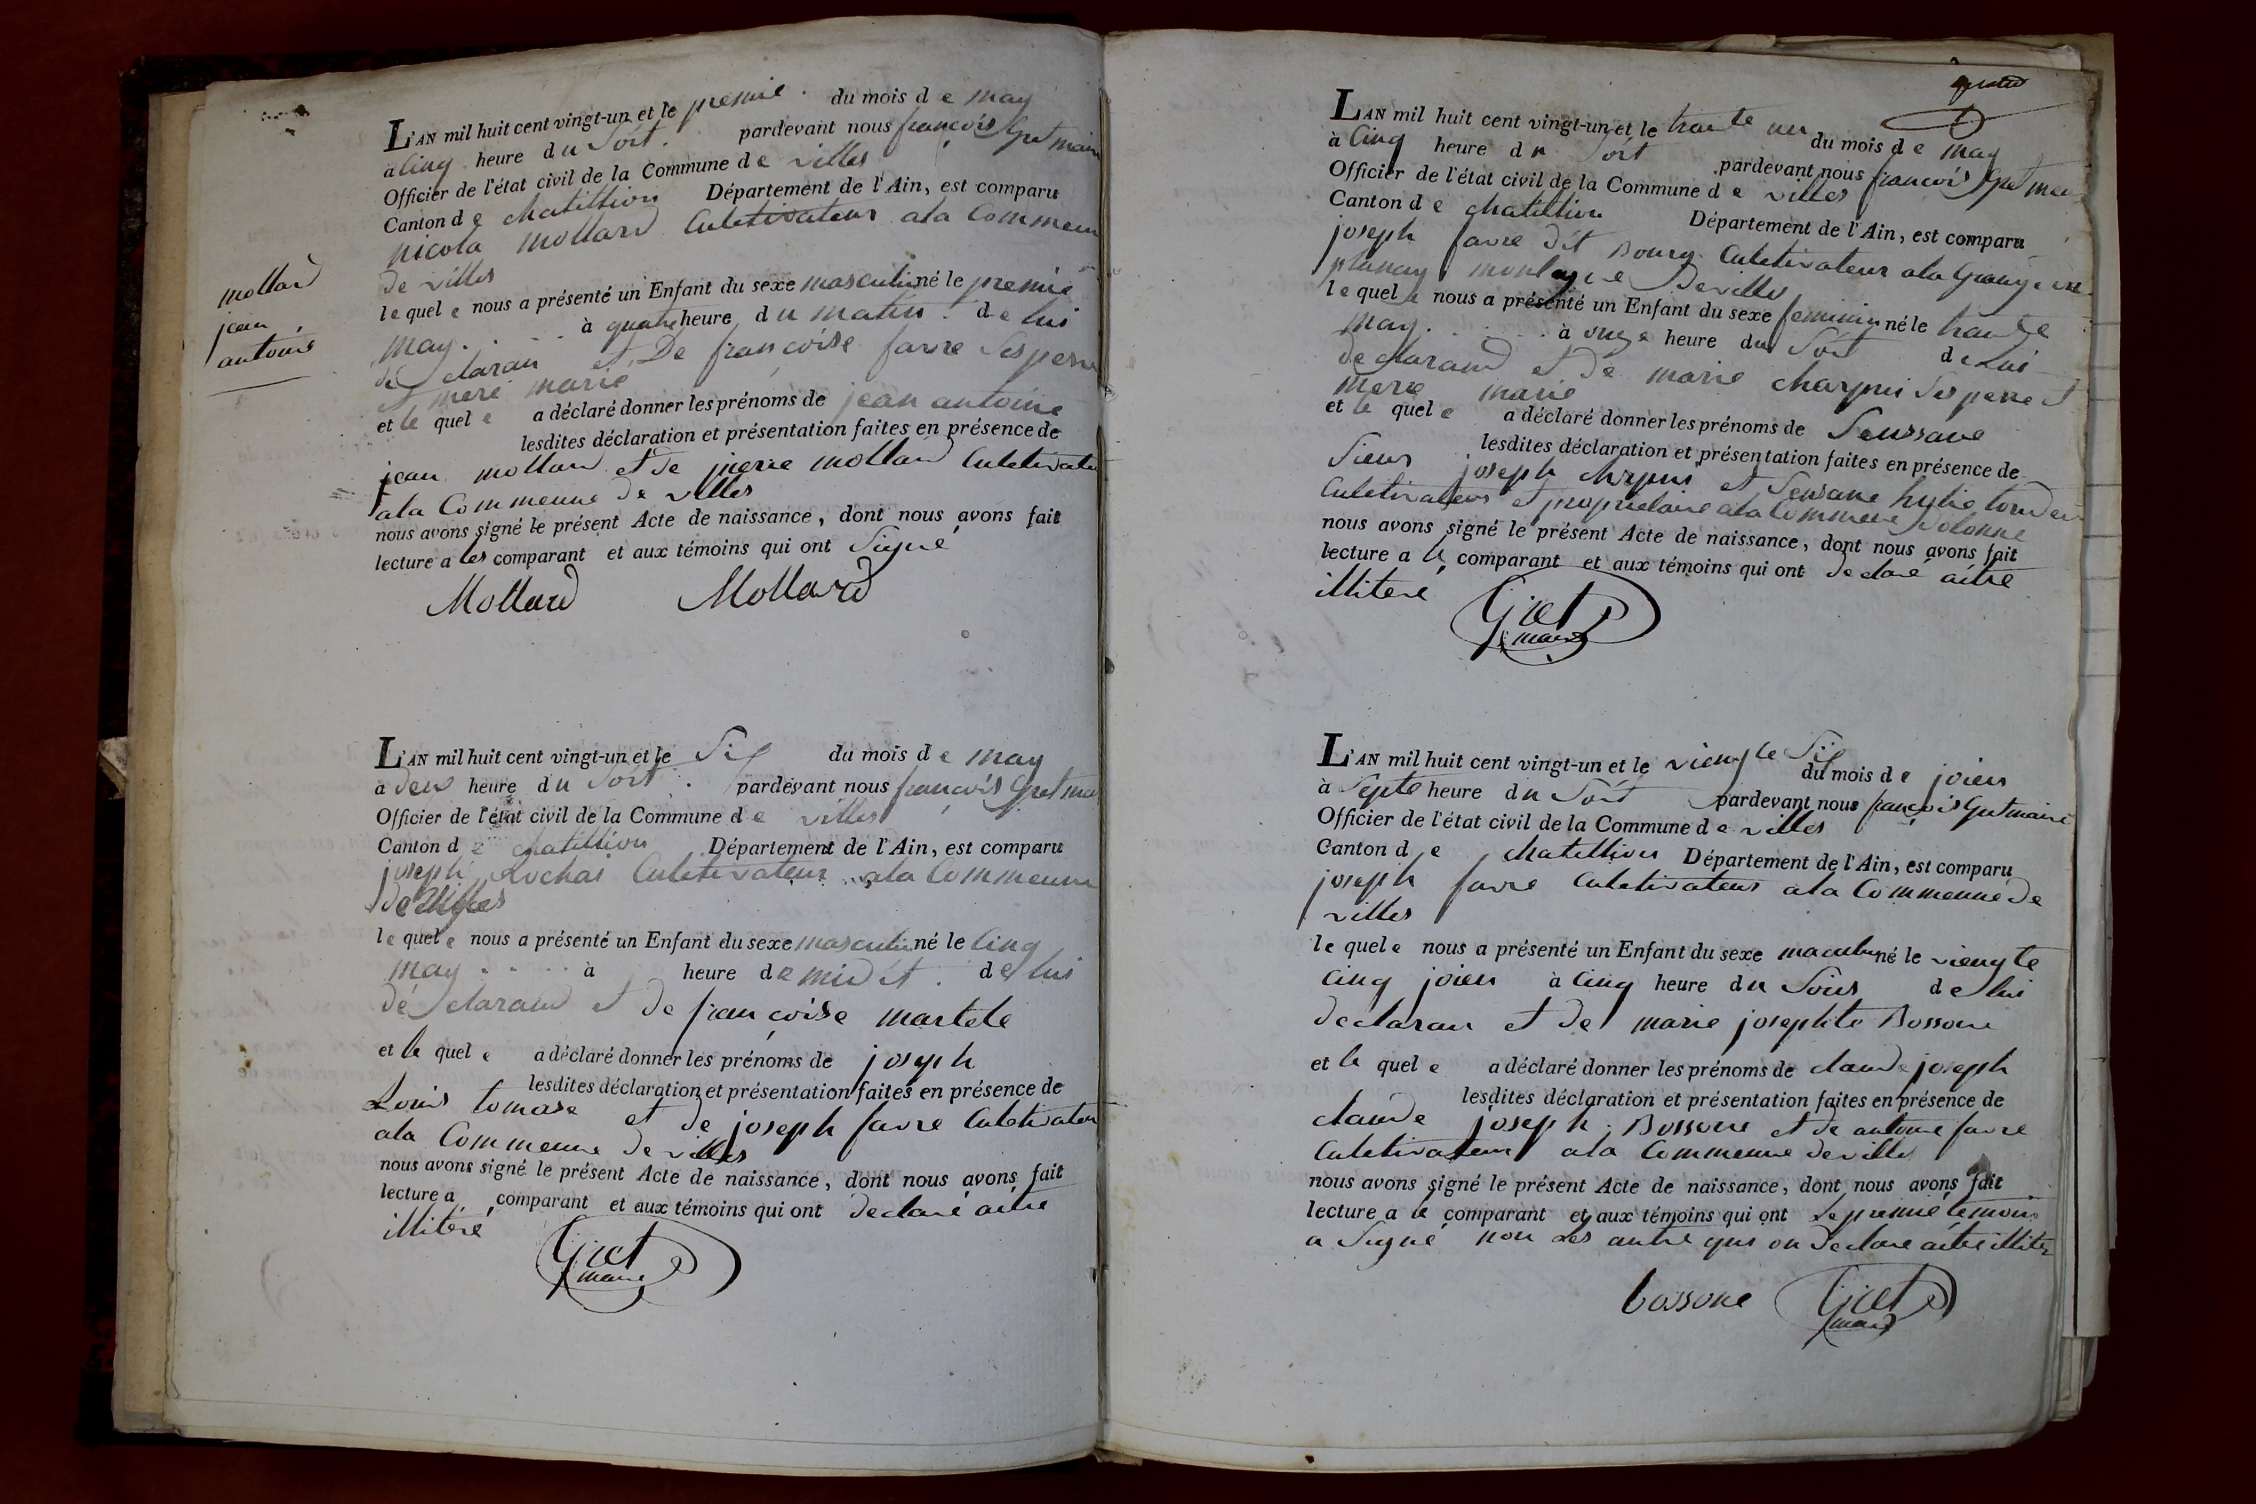 L'AN mil huit cent vingt-un et le premié du mois de may
à Cinq heure du Soit pardevant nous françois Gret maire
Officier de l'état civil de la Commune de villes
Canton de chatillion Département de l'Ain, est comparu
nicola mollard Culetivateur ala Commeun
de villes
lequele nous a présenté un Enfant du sexe masculin né le premié
may. à quatre heure du matin de lui
de claran et De françoise favre Ses perre
et mere marié
et le quele a déclaré donner les prénoms de jean antoine
lesdites déclaration et présentation faites en présence de
jean mollard et de pierre mollard Culetivateu
ala Commeune de villes
nous avons signé le présent Acte de naissance, dont nous avons fait
lecture a les comparant et aux témoins qui ont Signé
Mollard Mollard
mollard
jean
antoine
L'AN mil huit cent vingt-un et le Six du mois de may
à deux heure du Soit pardevant nous françois Gret mai
Officier de l'état civil de la Commune de villes
Canton de chatillion Département de l'Ain, est comparu
joseph Rochai Culetivateur ala Commeune
de villes
lequele nous a présenté un Enfant du sexe masculin né le Cinq
may à heure de midit de lui
dé clarand et de françoise martele
et le quele a déclaré donner les prénoms de joseph
lesdites déclaration et présentation faites en présence de
Louis tomase et de joseph favre Culetivateur
ala Commeune de villes
nous avons signé le présent Acte de naissance, dont nous avons fait
lecture a comparant et aux témoins qui ont declaré aitre
illiteré
Gret
maire
L'AN mil huit cent vingt-un et le trante un du mois de may
à Cinq heure du Soit pardevant nous françois Gret mai
Officier de l'état civil de la Commune de villes
Canton de chatillion Département de l'Ain, est comparu
joseph favre dit Bourg Culetivateur ala Grange en
planay montagne de villes
lequele nous a présenté un Enfant du sexe feminin né le trante
may. à onze heure du Soit de Lui
declarand et de marie charpui Ses perre et
merre marié
et le quele a déclaré donner les prénoms de Seussane
lesdites déclaration et présentation faites en présence de
Sieur joseph chrpui et Seusane
Culetivateur et proprietaire ala Commeune
nous avons signé le présent Acte de naissance, dont nous avons fait
lecture a le comparant et aux témoins qui ont declaré aitre
illiteré
Gret
maire
L'AN mil huit cent vingt-un et le viengte Six du mois de joien
à Septe heure du Soit pardevant nous françois Gret maire
Officier de l'état civil de la Commune de villes
Canton de chatillion Département de l'Ain, est comparu
joseph favre Culetivateur ala Commeune de
villes
lequele nous a présenté un Enfant du sexe maculin né le viengte
Cinq joien à Cinq heure du Soir de lui
declaran et de marie josephte Bossone
et le quele a déclaré donner les prénoms de claude joseph
lesdites déclaration et présentation faites en présence de
claude joseph Bossone et de antoine favre
Culetivateur ala Commeune de villes
nous avons signé le présent Acte de naissance, dont nous avons fait
lecture a le comparant et aux témoins qui ont Le premié temoin
a Signé non Les autre qui on declaré aitre illiter
bossone Gret
maire